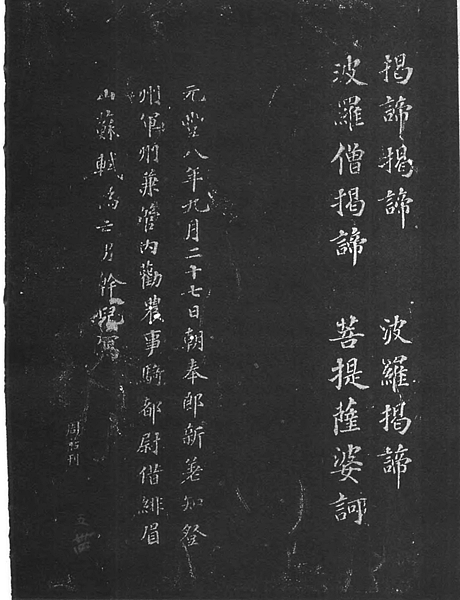 揭諦揭諦 波羅揭諦
波羅僧揭諦 菩提薩婆訶
元豐八年九月二十七日朝奉郎新差知登
州軍州兼管內勸農事騎都尉借緋眉
山蘇軾為亡男幹兒
刊